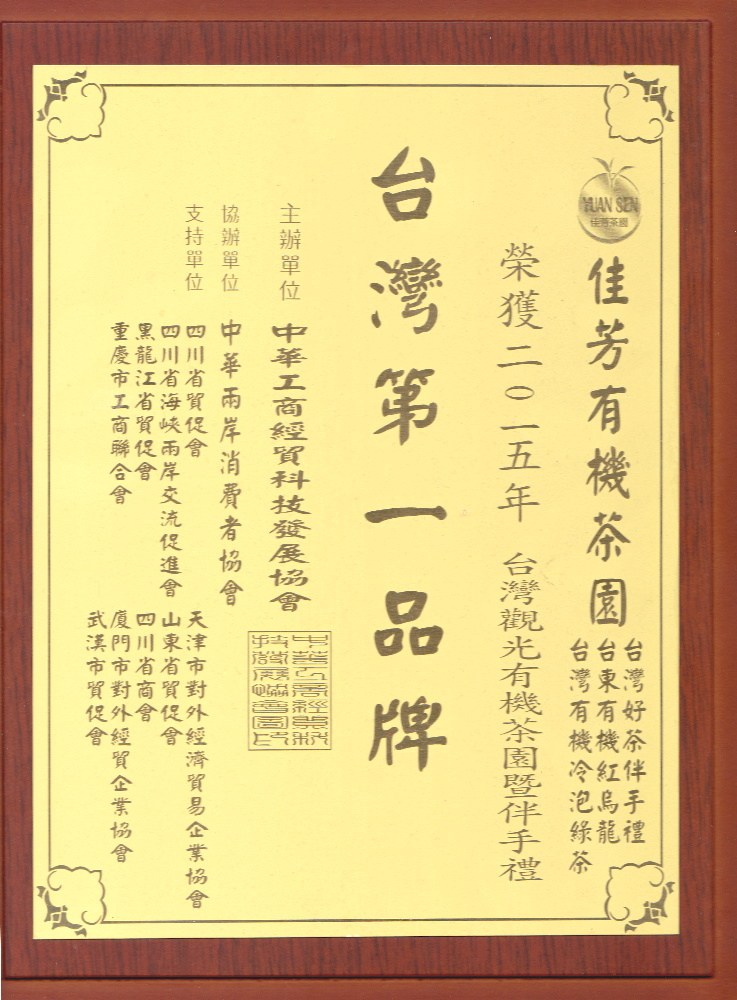 YUAN SEN
佳芳茶園
佳芳有機茶園
台灣好茶伴手禮
台東有機紅烏龍
台灣有機冷泡綠茶
榮獲二〇一五年 台灣觀光有機茶園暨伴手禮
台灣第一品牌
主辦單位 中華工商經貿科技發展協會
協辦單位 中華兩岸消費者協會
支持單位 四川省貿促會 天津市對外經濟貿易企業協會
四川省海峽兩岸交流促進會 山東省貿促會
黑龍江省貿促會 四川省商會
重慶市工商聯合會 廈門市對外經貿企業協會
武漢市貿促會
中華工商經貿科
技發展協會圖記